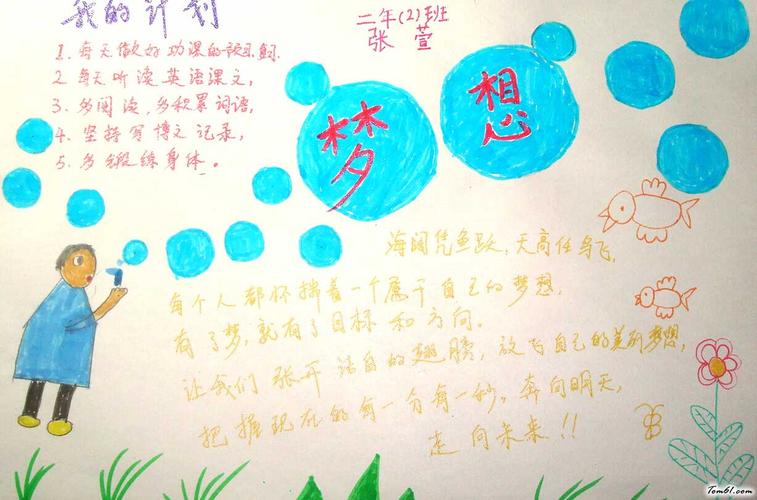 我的计划
二年(2)班
张萱
1. 每天做好功课的预习
2 每天听读英语课文,
3. 多阅读,多积累词语,
4. 坚持写博文记录,
5. 多锻练身体。
梦想
海阔凭鱼跃,天高任鸟飞,
每个人都怀揣着一个属于自己的梦想,
有了梦,就有了目标和方向。
让我们张开自的翅膀,放飞自己的美丽梦想,
把握现在的每一分每一秒。奔向明天,
走向未来!!
Tom61.com